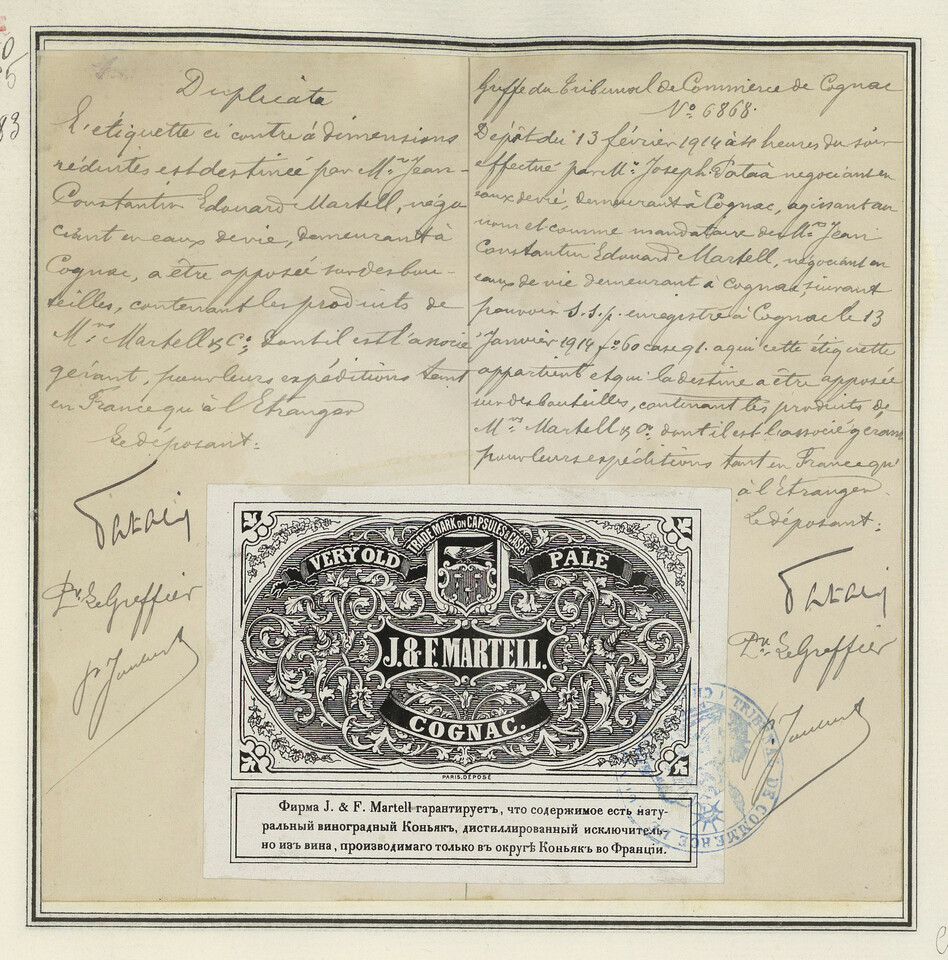 Duplicata
L'étiquette ci contre à dimensions
réduites est destinée par Mr. Jean-
Constantin Edouard Martell, négo
ciant en eaux de vie, demeurant à
Cognac, a être apposée sur des bou-
teilles, contenant les produits de
Mrs Martell & Co, dont il est l'associé
gérant, pour leurs expéditions tant
en France qu'à l'Etranger
Le déposant:
Pr. Le Greffier
Greffe du Tribunal de Commerce de Cognac
No 6868.
Dépôt du 13 février 1914 à 4 heures du soir
effectué par Mr. Joseph négociant en
eaux de vie, demeurant à Cognac, agissant au
nom et comme mandataire de Mr. Jean
Constantin Edouard Martell, négociant en
eaux de vie demeurant à Cognac, suivant
pouvoir s.s.p. enregistré à Cognac le 13
Janvier 1914 fo 60 case 91. a qui cette étiquette
appartient et qui la destine a être apposée
sur des bouteilles, contenant les produits de
Mrs Martell & Co. dont il est l'associé gérant
pour leurs expéditions tant en France qu'
à l'Etranger
Le déposant:
Pr. Le Greffier
TRADE MARK ON CAPSULES & CASES
VERY OLD PALE
J. & F. MARTELL.
COGNAC.
PARIS. DÉPOSÉ
Фирма J. & F. Martell гарантируетъ, что содержимое есть нату-
ральный виноградный Коньякъ, дистиллированный исключитель-
но изъ вина, производимаго только въ округѣ Коньякъ во Франціи.
TRIBUNAL DE COMMERCE